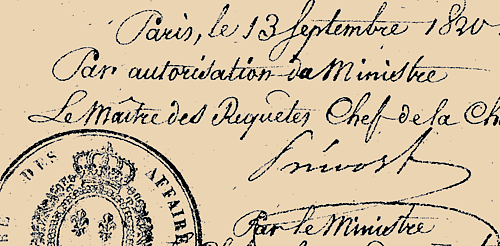 Paris, le 13 Septembre 1820.
Par autorisation du Ministre
Le Maître des Requêtes Chef de la Ch
Prévost
DES AFFAIRE
Par le Ministre